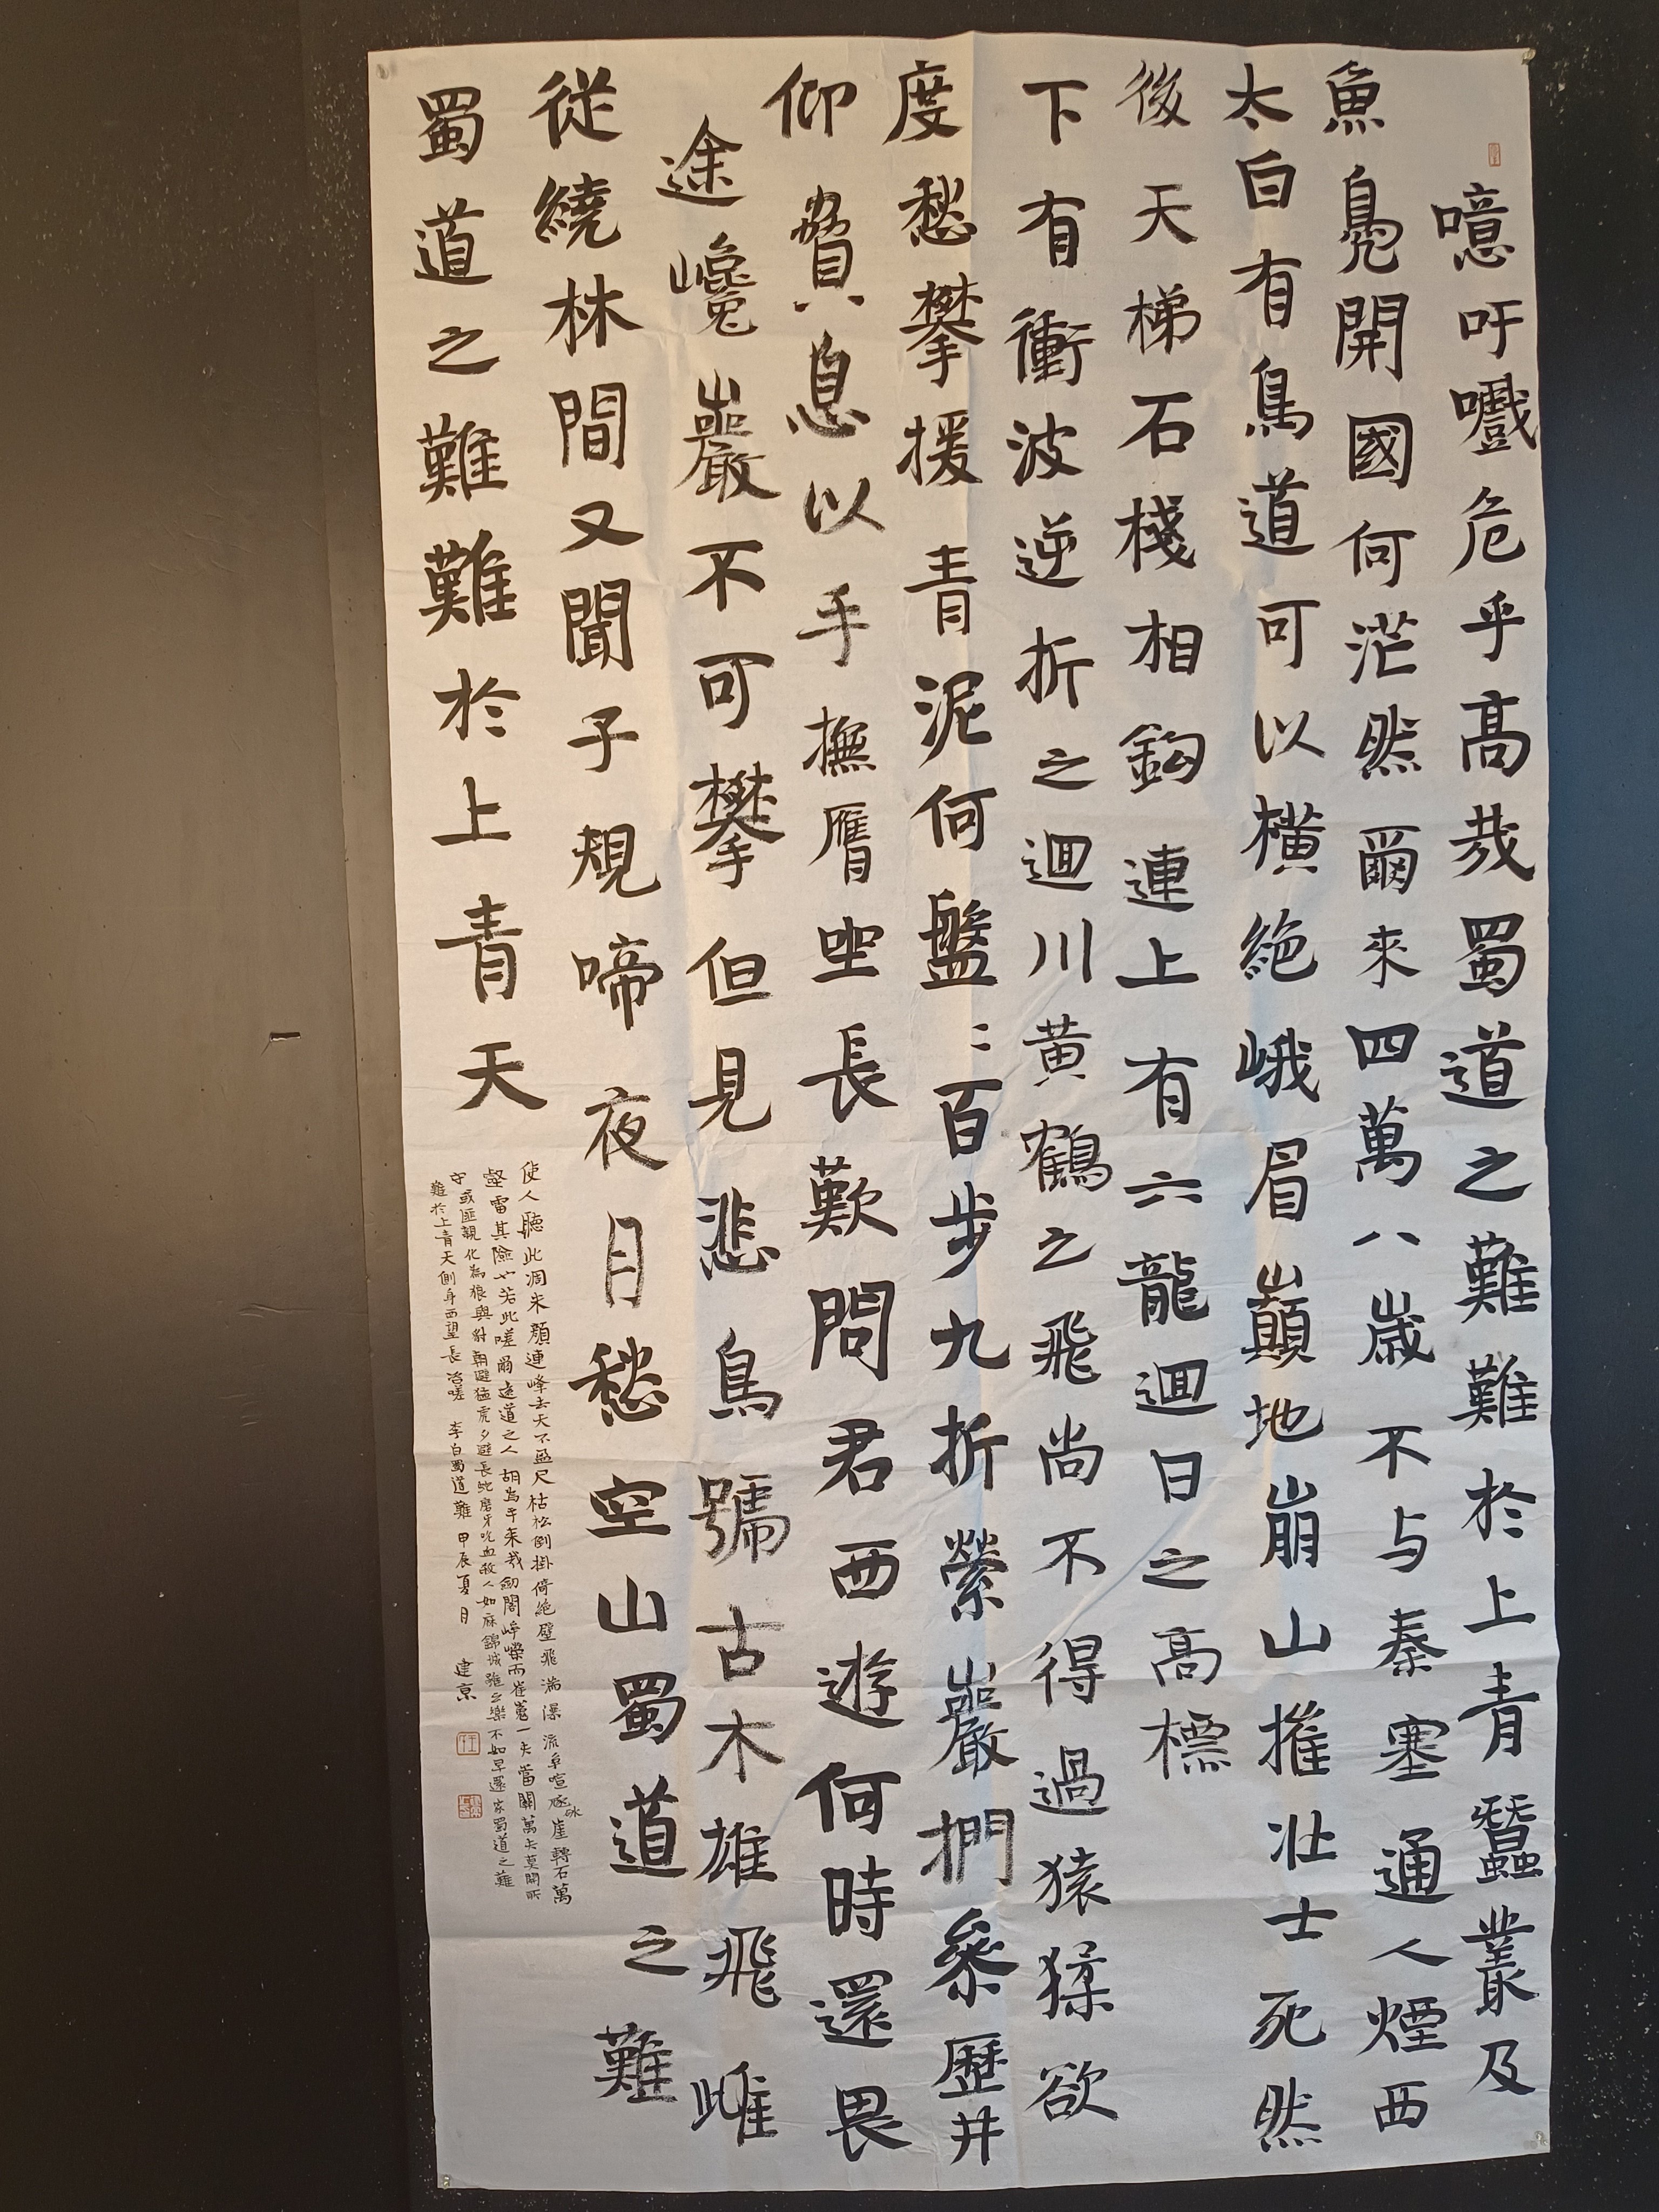 噫吁嚱危乎高哉蜀道之難難於上青蠶叢及
魚鳧開國何茫然爾來四萬八歲不与秦塞通人煙西
太白有鳥道可以橫絶峨眉巔地崩山摧壯士死然
後天梯石棧相鈎連上有六龍迴日之高標
下有衝波逆折之迴川黃鶴之飛尚不得過猿猱欲
度愁攀援青泥何盤〻百步九折縈巖捫參歷井
仰脅息以手撫膺坐長歎問君西遊何時還畏
途巉巖不可攀但見悲鳥號古木雄飛雌
從繞林間又聞子規啼夜月愁空山蜀道之難
蜀道之難難於上青天
使人聽此凋朱顏連峰去天不盈尺枯松倒掛倚絶壁飛湍瀑流爭喧豗砯崖轉石萬
壑雷其險也若此嗟爾遠道之人胡為乎來哉劒閣崢嶸而崔嵬一夫當關萬夫莫開所
守或匪親化為狼與豺朝避猛虎夕避長蛇磨牙吮血殺人如麻錦城雖云樂不如早還家蜀道之難
難於上青天側身西望長咨嗟 李白蜀道難 甲辰夏月 建京